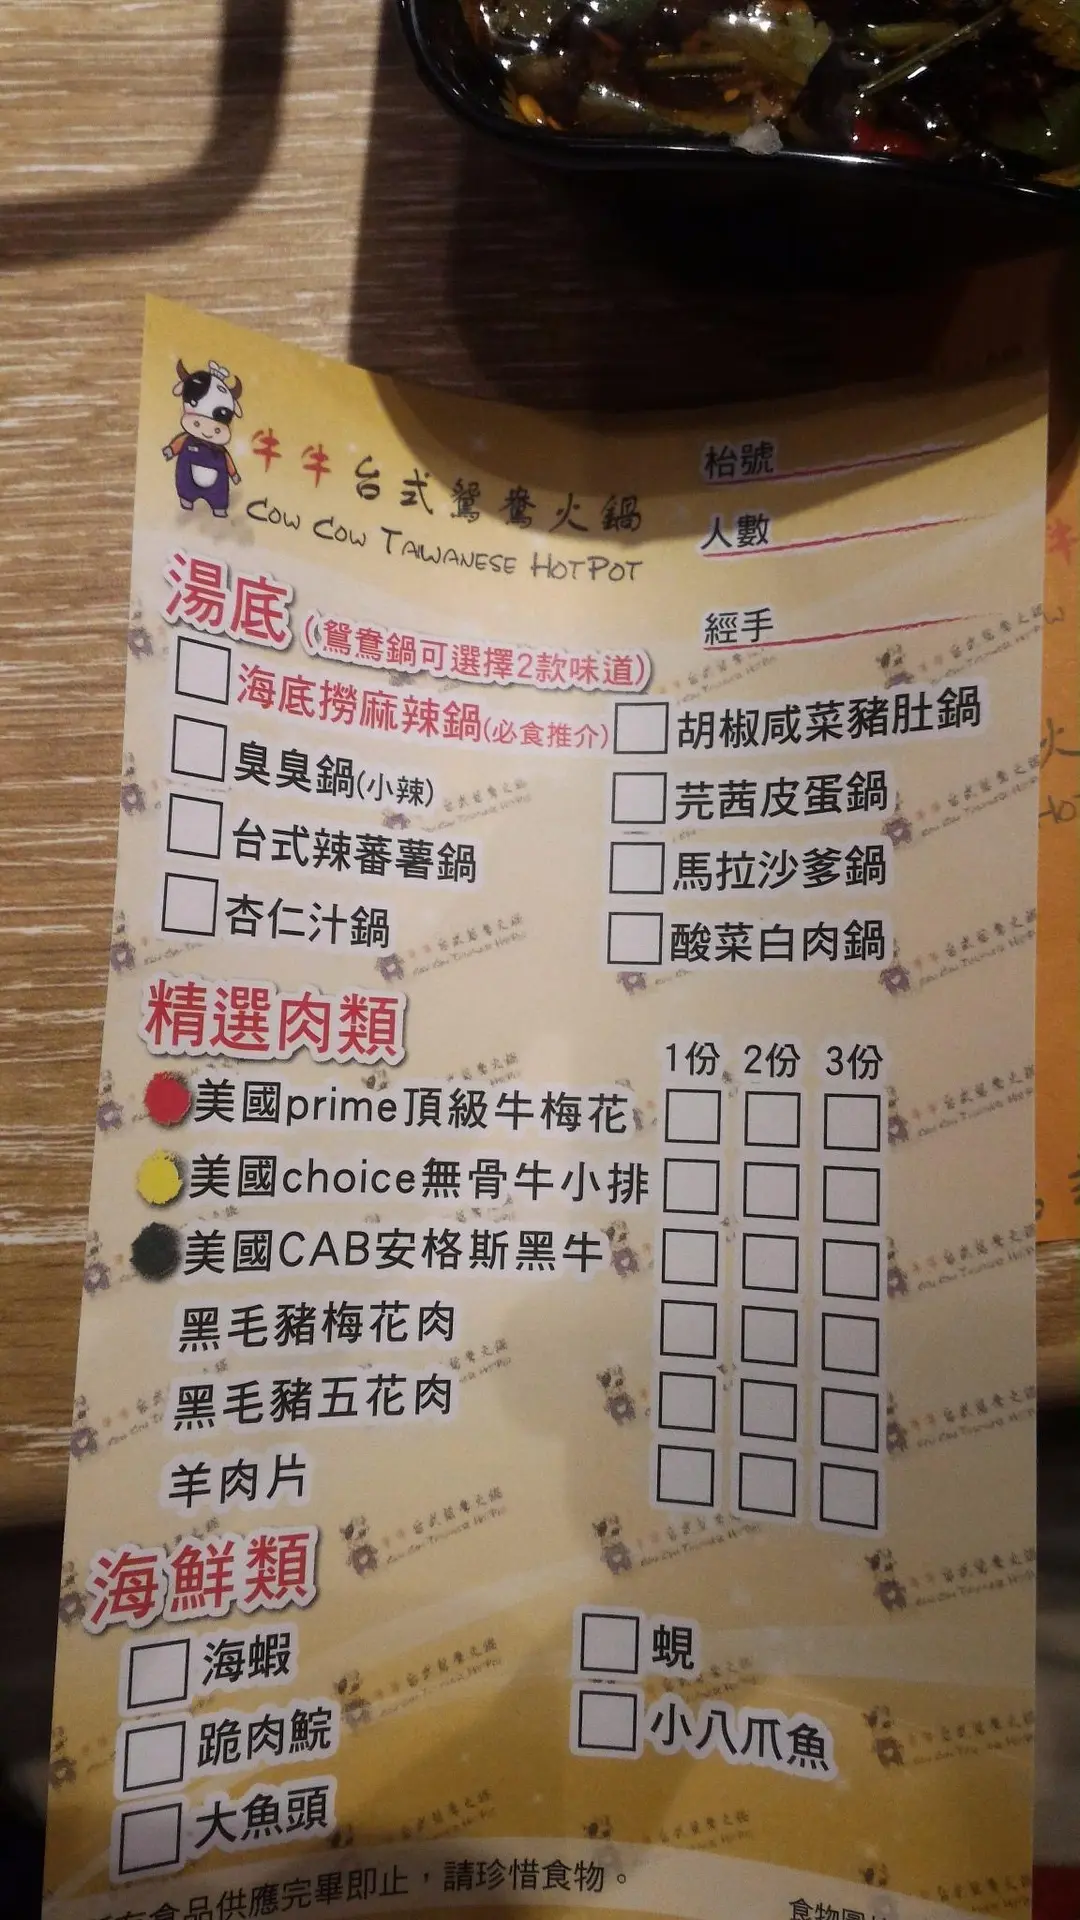 牛牛台式鴛鴦火鍋
COW COW TAIWANESE HOTPOT
枱號
人數
經手
湯底(鴛鴦鍋可選擇2款味道)
海底撈麻辣鍋(必食推介)
胡椒咸菜豬肚鍋
臭臭鍋(小辣)
芫茜皮蛋鍋
台式辣蕃薯鍋
馬拉沙爹鍋
杏仁汁鍋
酸菜白肉鍋
精選肉類
1份 2份 3份
美國prime頂級牛梅花
美國choice無骨牛小排
美國CAB安格斯黑牛
黑毛豬梅花肉
黑毛豬五花肉
羊肉片
海鮮類
海蝦
蜆
跪肉鯇
小八爪魚
大魚頭
食品供應完畢即止，請珍惜食物。
食物圖